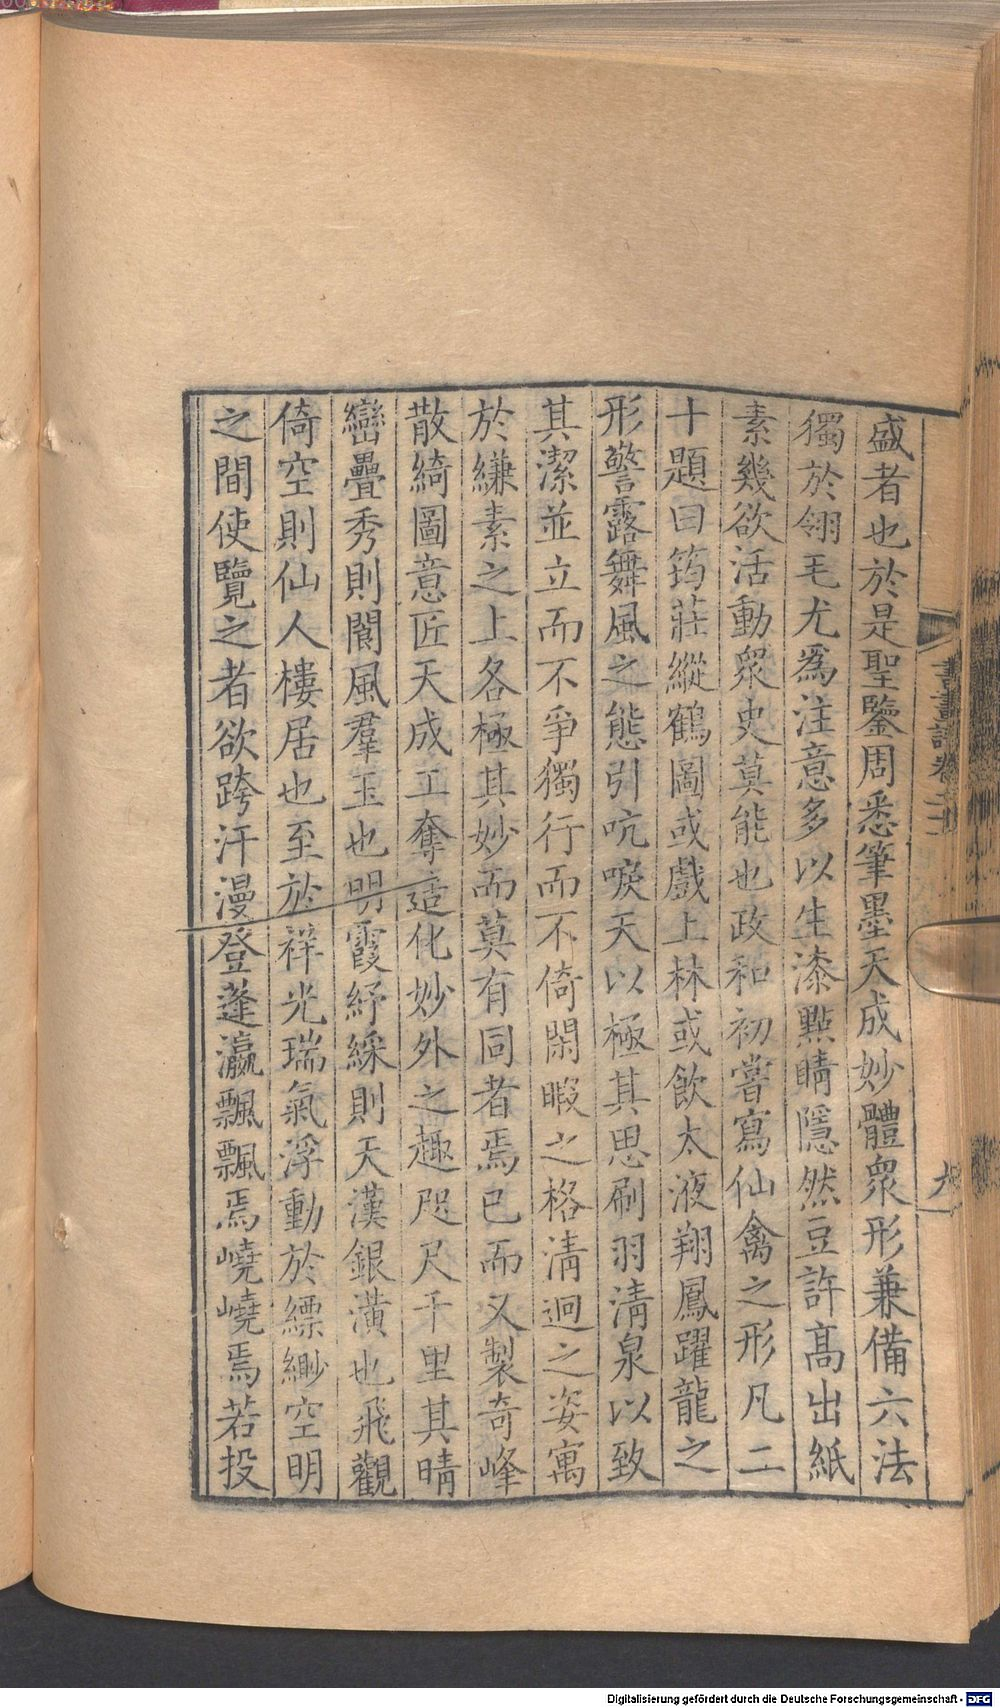 盛者也於是聖鑒周悉筆墨天成妙體衆形兼備六法
獨於翎毛尤爲注意多以生漆點睛隱然豆許高出紙
素幾欲活動衆史莫能也政和初嘗寫仙禽之形凡二
十題曰筠莊縱鶴圖或戲上林或飲太液翔鳳躍龍之
形警露舞風之態引吭唳天以極其思刷羽清泉以致
其潔並立而不爭獨行而不倚閑暇之格清迥之姿寓
於縑素之上各極其妙而莫有同者焉已而又製奇峰
散綺圖意匠天成工奪造化妙外之趣咫尺千里其晴
巒疊秀則閬風羣玉也明霞紓綵則天漢銀潢也飛觀
倚空則仙人樓居也至於祥光瑞氣浮動於縹緲空明
之間使覽之者欲跨汗漫登蓬瀛飄飄焉嶢嶢焉若投
書畫譜卷
九
Digitalisierung gefördert durch die Deutsche Forschungsgemeinschaft - DFG